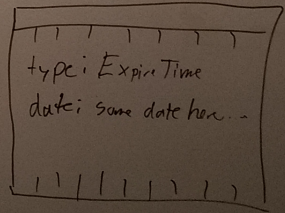 type: Expire Time
date: some date here...